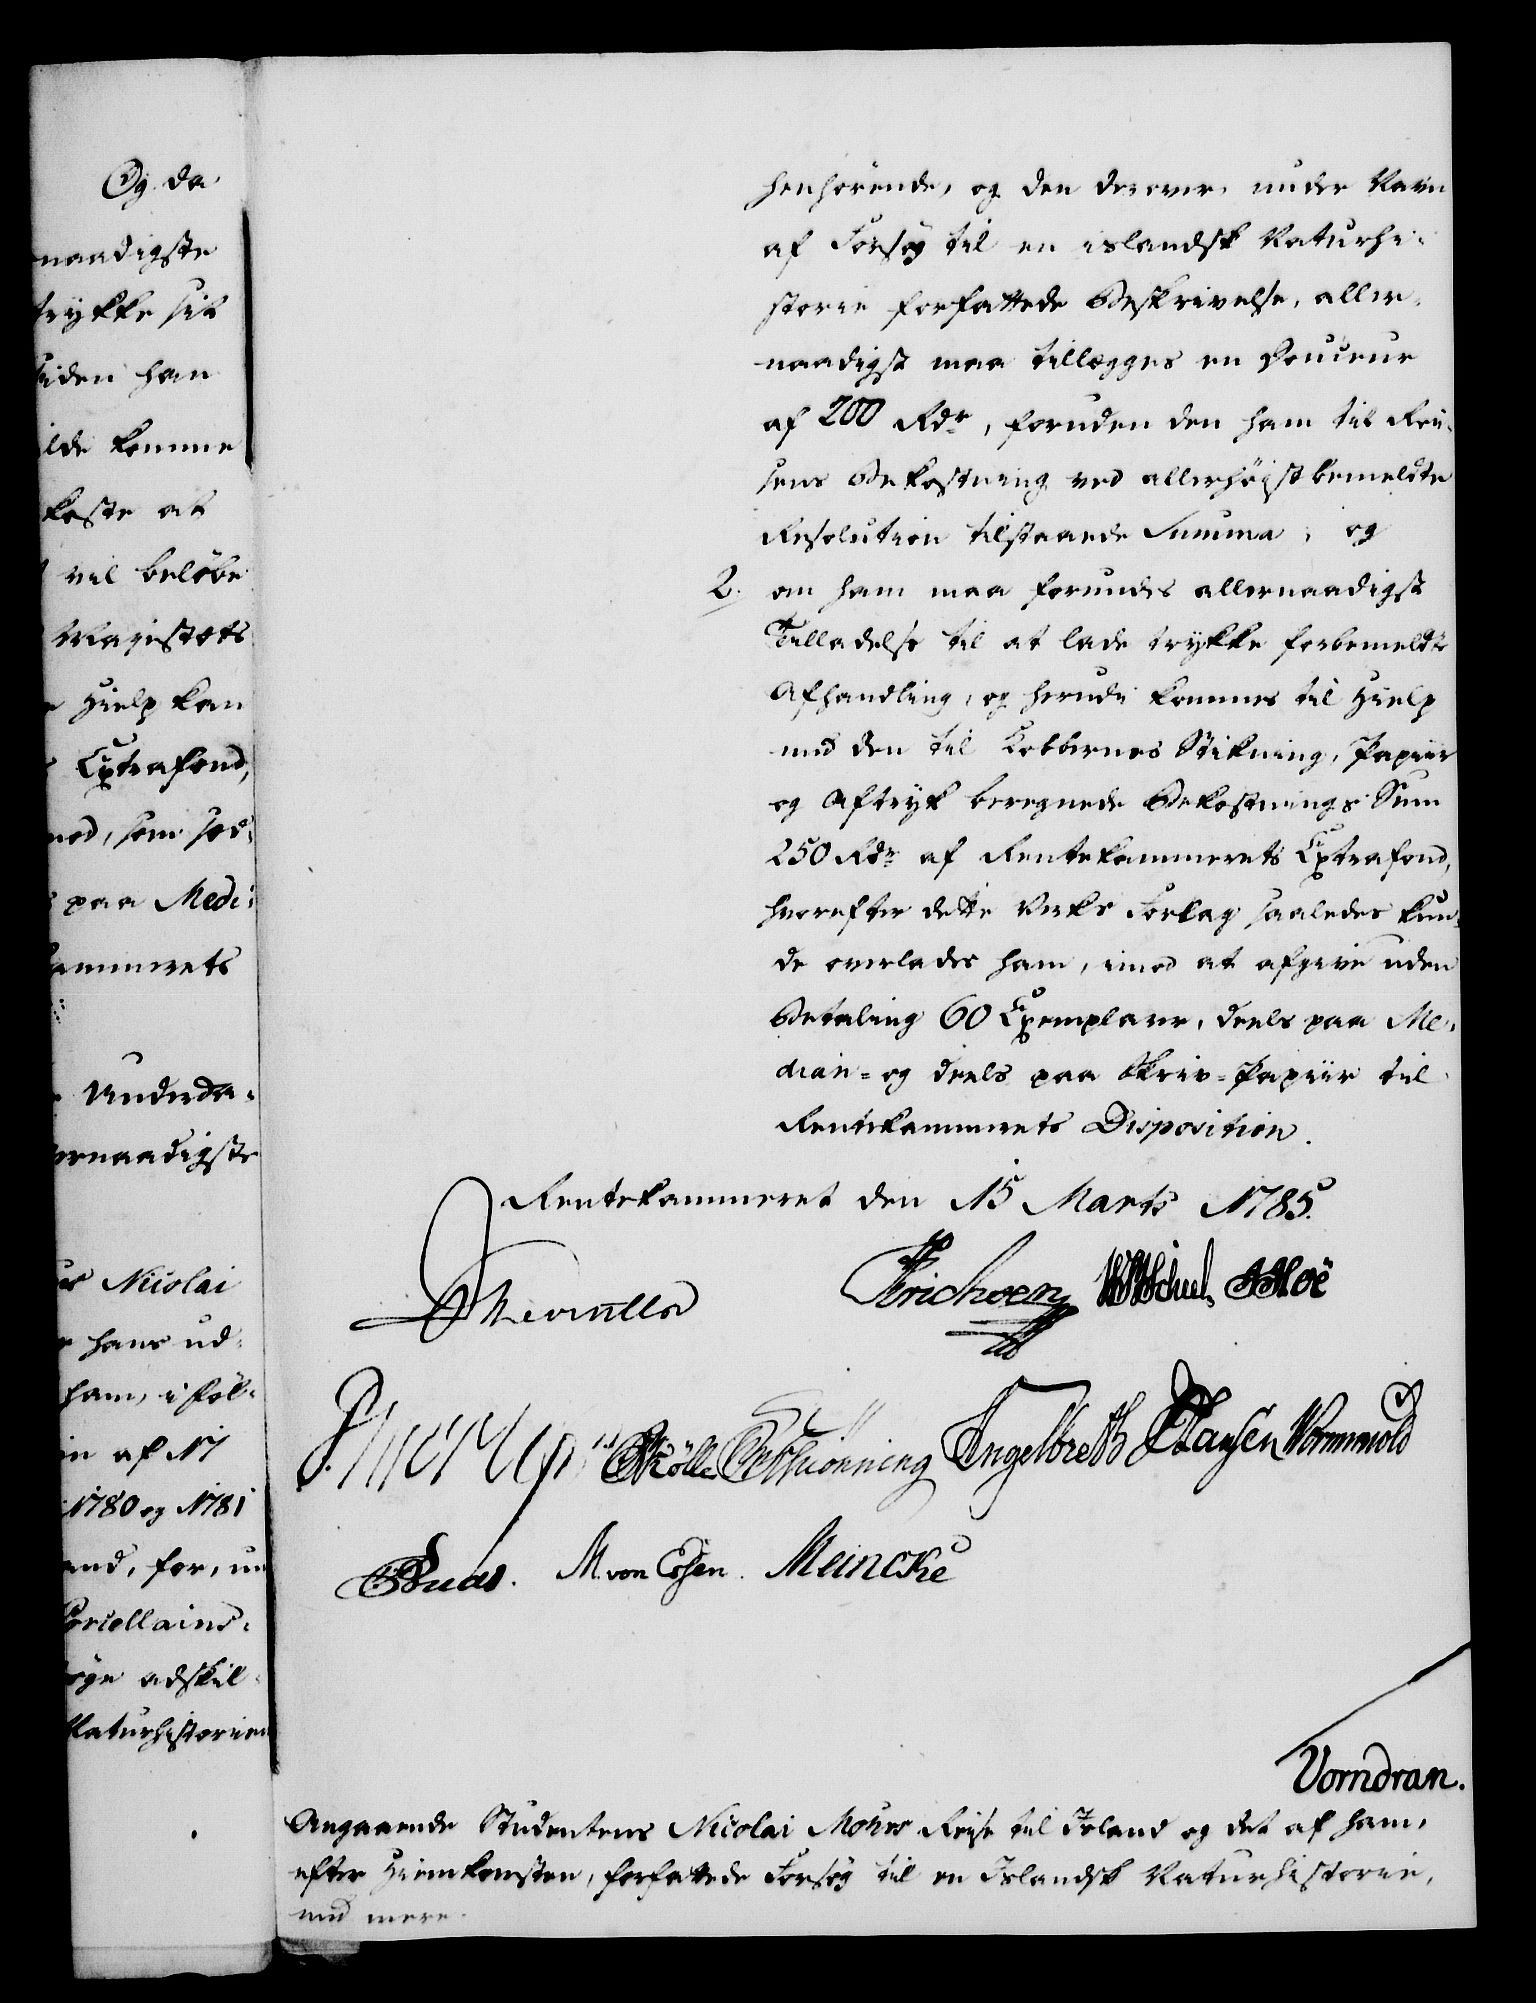 Og da
naadigste
trykke sit
siden han
ilde komme
koste at
vil beløbe
Majestæts
Hielp kan
Extrafond,
med, som sæd-
paa Medi-
ammerets
Underda-
ernaadigste
Nicolai
hans ud-
ham, i føl-
in af 17
1780 og 1781
and, for, un
Porcellains-
øye adskil-
Naturhistorien
henhørende, og den derover, under Navn
af Forsøg til en islandsk Naturhi-
storie forfattede Beskrivelse, aller-
naadigst maa tillægges en Douceur
af 200 Rdr, foruden den ham til Rei-
sens Bekostning ved allerhøist bemeldte
Resolution tilstaaede Summa, og
2. om ham maa forundes allernaadigst
Tilladelse til at lade trykke forbemeldte
Afhandling, og herudi kommes til Hielp
med den til Kobbernes Stikning, Papiir
og Aftryk beregnede Bekostnings Sum
250 Rdr af Rentekammerets Extrafond,
hvorefter dette Verks Forlag saaledes kun-
de overlades ham, imod at afgive uden
Betaling 60 Exemplarer, deels paa Me-
dian- og deels paa Skriv-Papiir til
Rentekammerets Disposition.
Rentekammeret den 15 Marts 1785.
Erichsen Scheel Hoë
Rölle Schiönning Engelbreth Hansen Wormwold
M. von Essen. Meincke
Vorndran.
Angaaende Studentens Nicolai Mohrs Reise til Island og det af ham,
efter Hiemkomsten, forfattede Forsøg til en Islandsk Naturhistorie,
med mere.